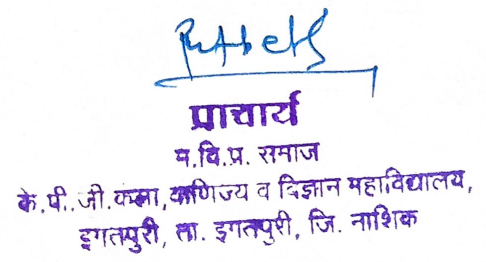 प्राचार्य
म.वि.प्र. समाज
के.पी.जी.कला,वाणिज्य व विज्ञान महाविद्यालय,
इगतपुरी, ता. इगतपुरी, जि. नाशिक